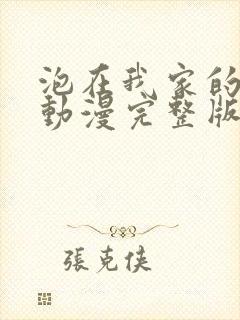 泡在我家的
動漫完整版
張克俠